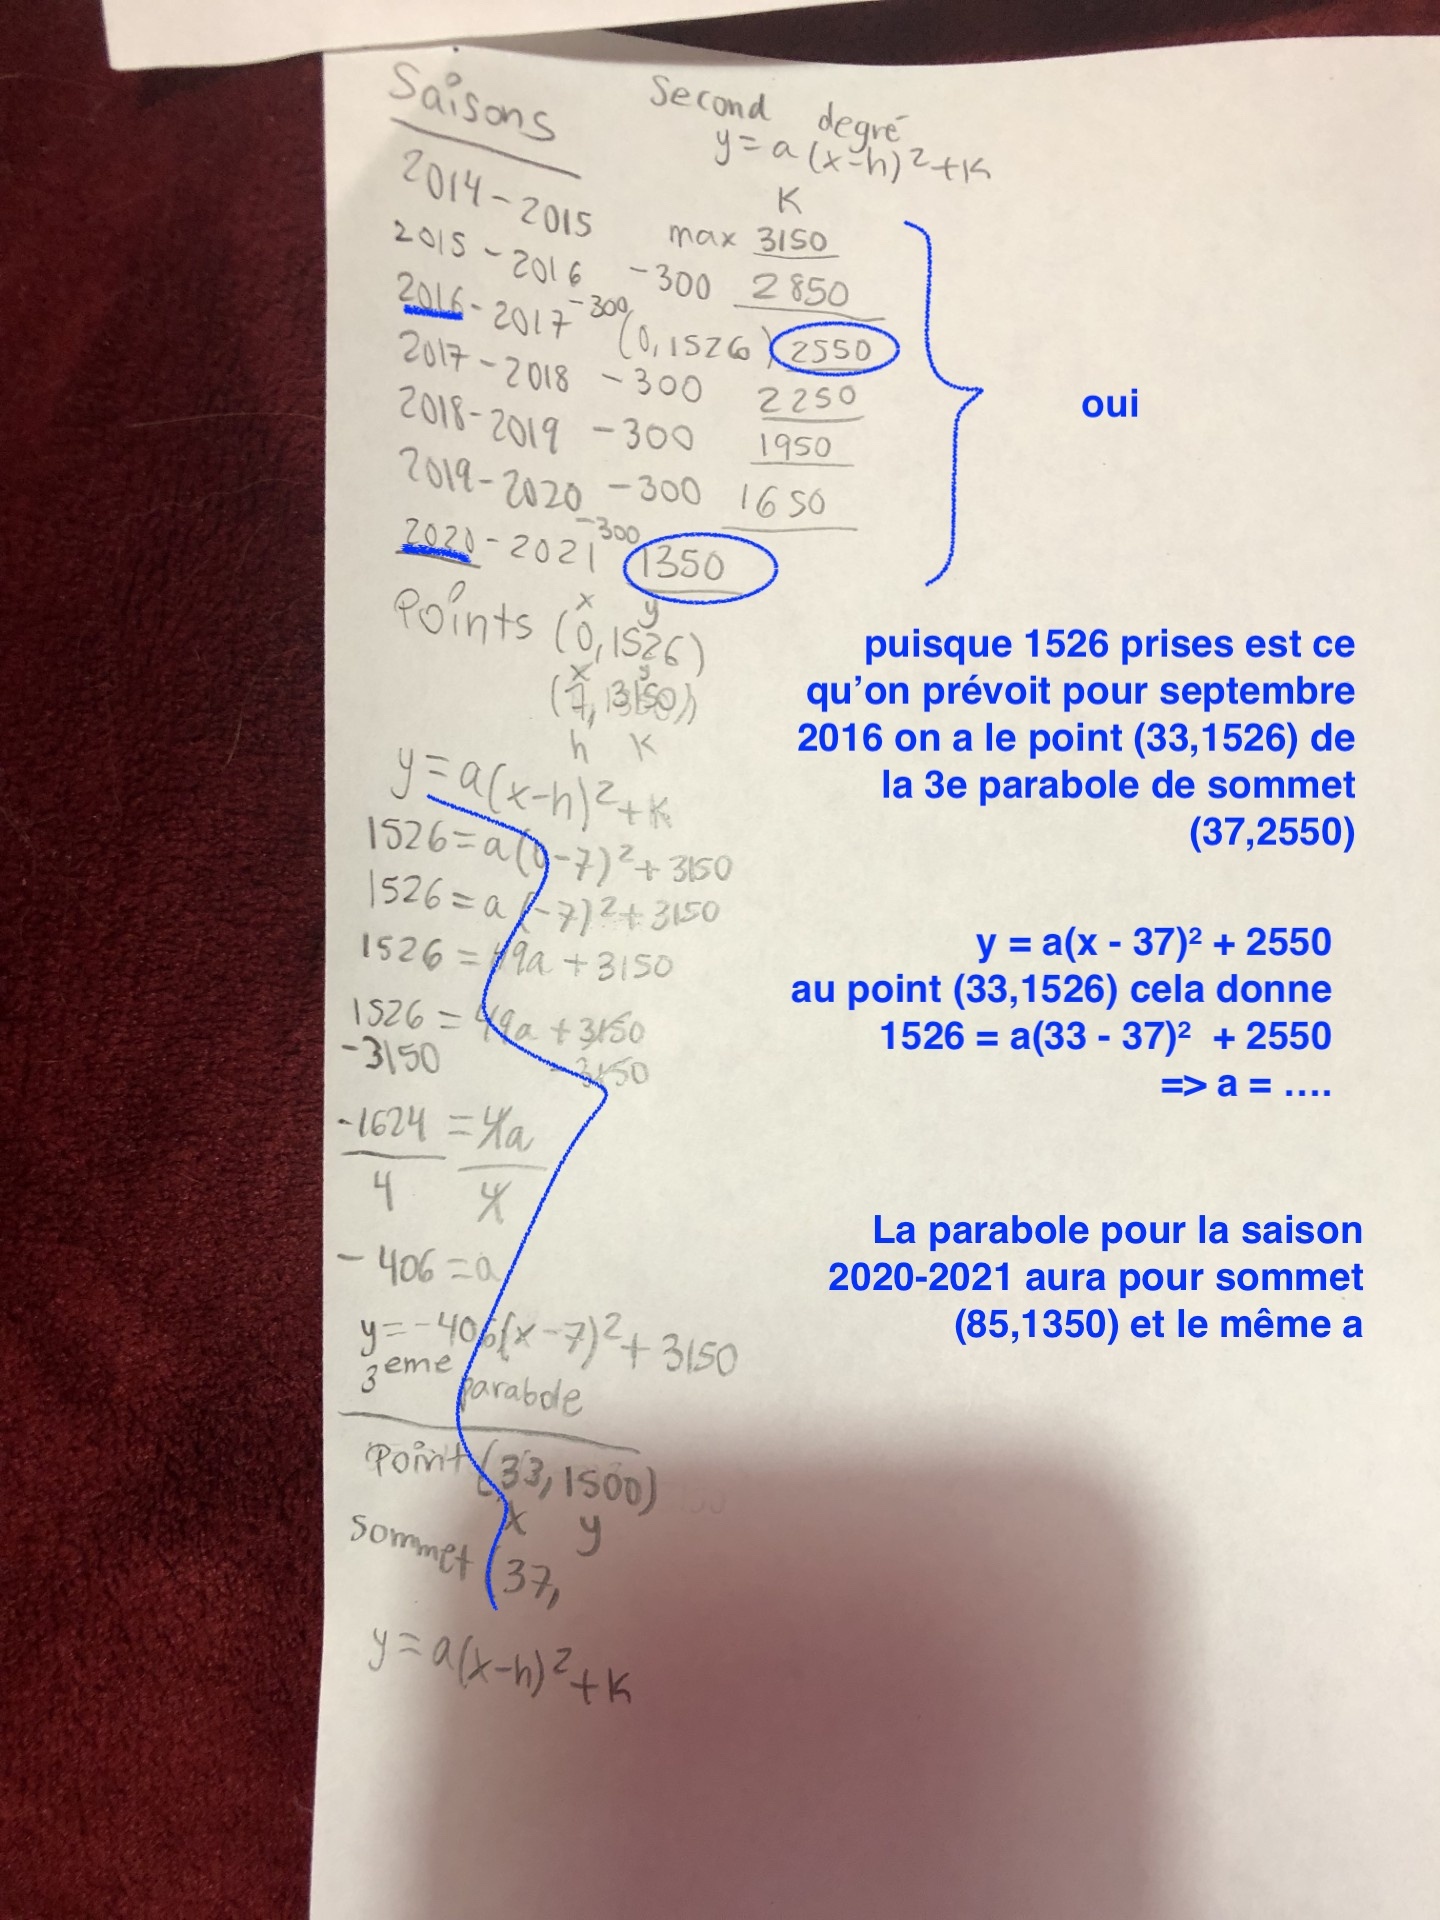 Saisons
Second degré
y = a (x-h)² + K
K
2014 - 2015 max 3150
2015 - 2016 -300 2850
2016 - 2017 -300 (0, 1526) 2550
2017 - 2018 -300 2250
2018 - 2019 -300 1950
2019 - 2020 -300 1650
2020 - 2021 -300 1350
oui
x y
Points (0, 1526)
x y
(7, 3150)
h K
puisque 1526 prises est ce
qu’on prévoit pour septembre
2016 on a le point (33,1526) de
la 3e parabole de sommet
(37,2550)
y = a(x-h)² + K
1526 = a(0-7)² + 3150
1526 = a(-7)² + 3150
1526 = 49a + 3150
y = a(x - 37)² + 2550
au point (33,1526) cela donne
1526 = a(33 - 37)² + 2550
=> a = ....
1526 = 49a + 3150
-3150 -3150
-1624 = 4a
4 4
-406 = a
La parabole pour la saison
2020-2021 aura pour sommet
(85,1350) et le même a
y = -406(x-7)² + 3150
3eme parabole
Point (33, 1500)
x y
Sommet (37,
y = a(x-h)² + K